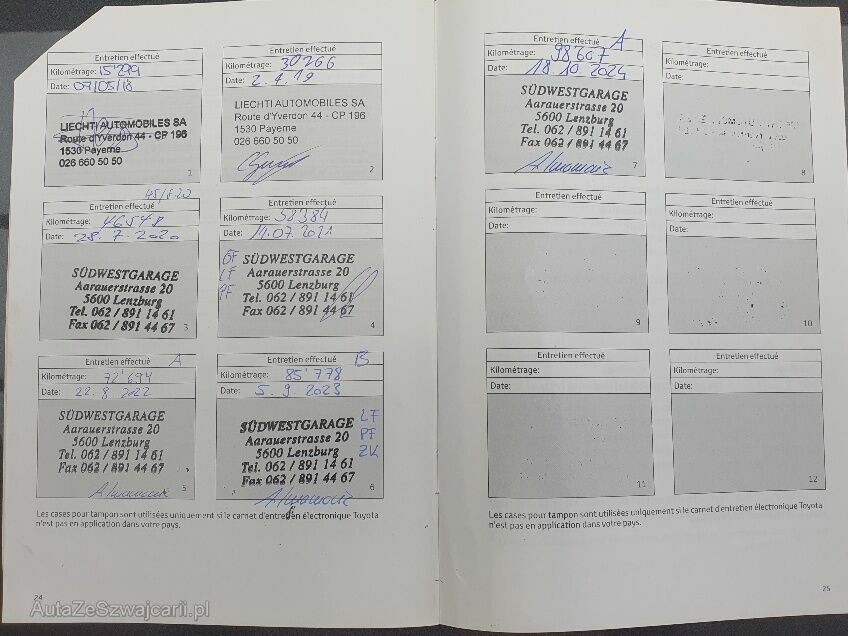 Entretien effectué
Kilométrage: 15'299
Date: 07/05/18
LIECHTI AUTOMOBILES SA
Route d'Yverdon 44 - CP 196
1530 Payerne
026 660 50 50
1
Entretien effectué
Kilométrage: 30266
Date: 2.4.19
LIECHTI AUTOMOBILES SA
Route d'Yverdon 44 - CP 196
1530 Payerne
026 660 50 50
2
Entretien effectué
Kilométrage: 46548
Date: 28.7.2020
SÜDWESTGARAGE
Aarauerstrasse 20
5600 Lenzburg
Tel. 062 / 891 14 61
Fax 062 / 891 44 67
3
Entretien effectué
Kilométrage: 58384
Date: 11.07.2021
ÖF
LF
PF
SÜDWESTGARAGE
Aarauerstrasse 20
5600 Lenzburg
Tel. 062 / 891 14 61
Fax 062 / 891 44 67
4
Entretien effectué A
Kilométrage: 72'694
Date: 22.8.2022
SÜDWESTGARAGE
Aarauerstrasse 20
5600 Lenzburg
Tel. 062 / 891 14 61
Fax 062 / 891 44 67
5
Entretien effectué B
Kilométrage: 85'778
Date: 5.9.2023
SÜDWESTGARAGE
Aarauerstrasse 20
5600 Lenzburg
Tel. 062 / 891 14 61
Fax 062 / 891 44 67
LF
PF
ZK
6
Les cases pour tampon sont utilisées uniquement si le carnet d'entretien électronique Toyota
n'est pas en application dans votre pays.
24
Entretien effectué A
Kilométrage: 98607
Date: 18.10.2024
SÜDWESTGARAGE
Aarauerstrasse 20
5600 Lenzburg
Tel. 062 / 891 14 61
Fax 062 / 891 44 67
7
Entretien effectué
Kilométrage:
Date:
8
Entretien effectué
Kilométrage:
Date:
9
Entretien effectué
Kilométrage:
Date:
10
Entretien effectué
Kilométrage:
Date:
11
Entretien effectué
Kilométrage:
Date:
12
Les cases pour tampon sont utilisées uniquement si le carnet d'entretien électronique Toyota
n'est pas en application dans votre pays.
25
AutaZeSzwajcarii.pl